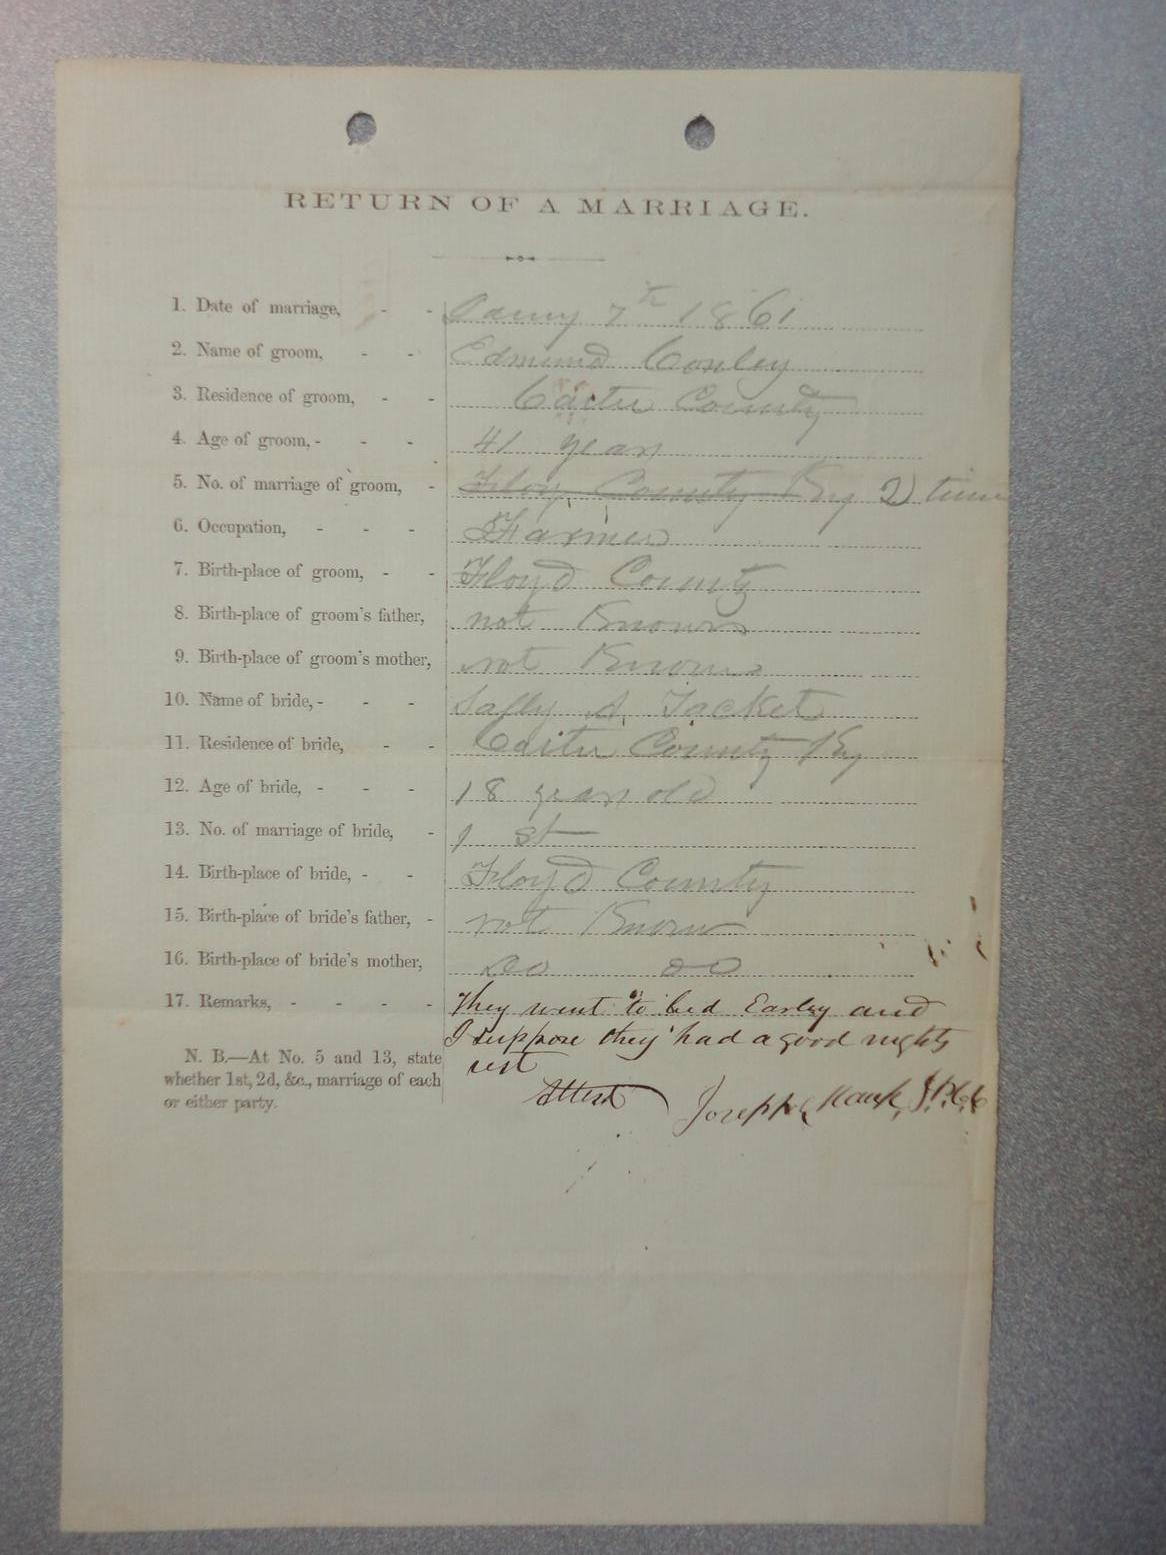 RETURN OF A MARRIAGE.
1. Date of marriage, - - 7th 1861
2. Name of groom, - - Edmund Conley
3. Residence of groom, - - Carter County
4. Age of groom, - - - 41 years
5. No. of marriage of groom, - Floy County Ky 2) time
6. Occupation, - - - Farmer
7. Birth-place of groom, - - Floyd County
8. Birth-place of groom's father, not Known
9. Birth-place of groom's mother, not Known
10. Name of bride, - - - Sally A. Tacket
11. Residence of bride, - - Carter County Ky
12. Age of bride, - - - 18 years old
13. No. of marriage of bride, - 1 st
14. Birth-place of bride, - - Floyd County
15. Birth-place of bride's father, - not Known
16. Birth-place of bride's mother, Do do
17. Remarks, - - - - They went to bed Earley and
I suppose they had a good nights
rest
N. B.—At No. 5 and 13, state
whether 1st, 2d, &c., marriage of each
or either party.
Attest Joseph